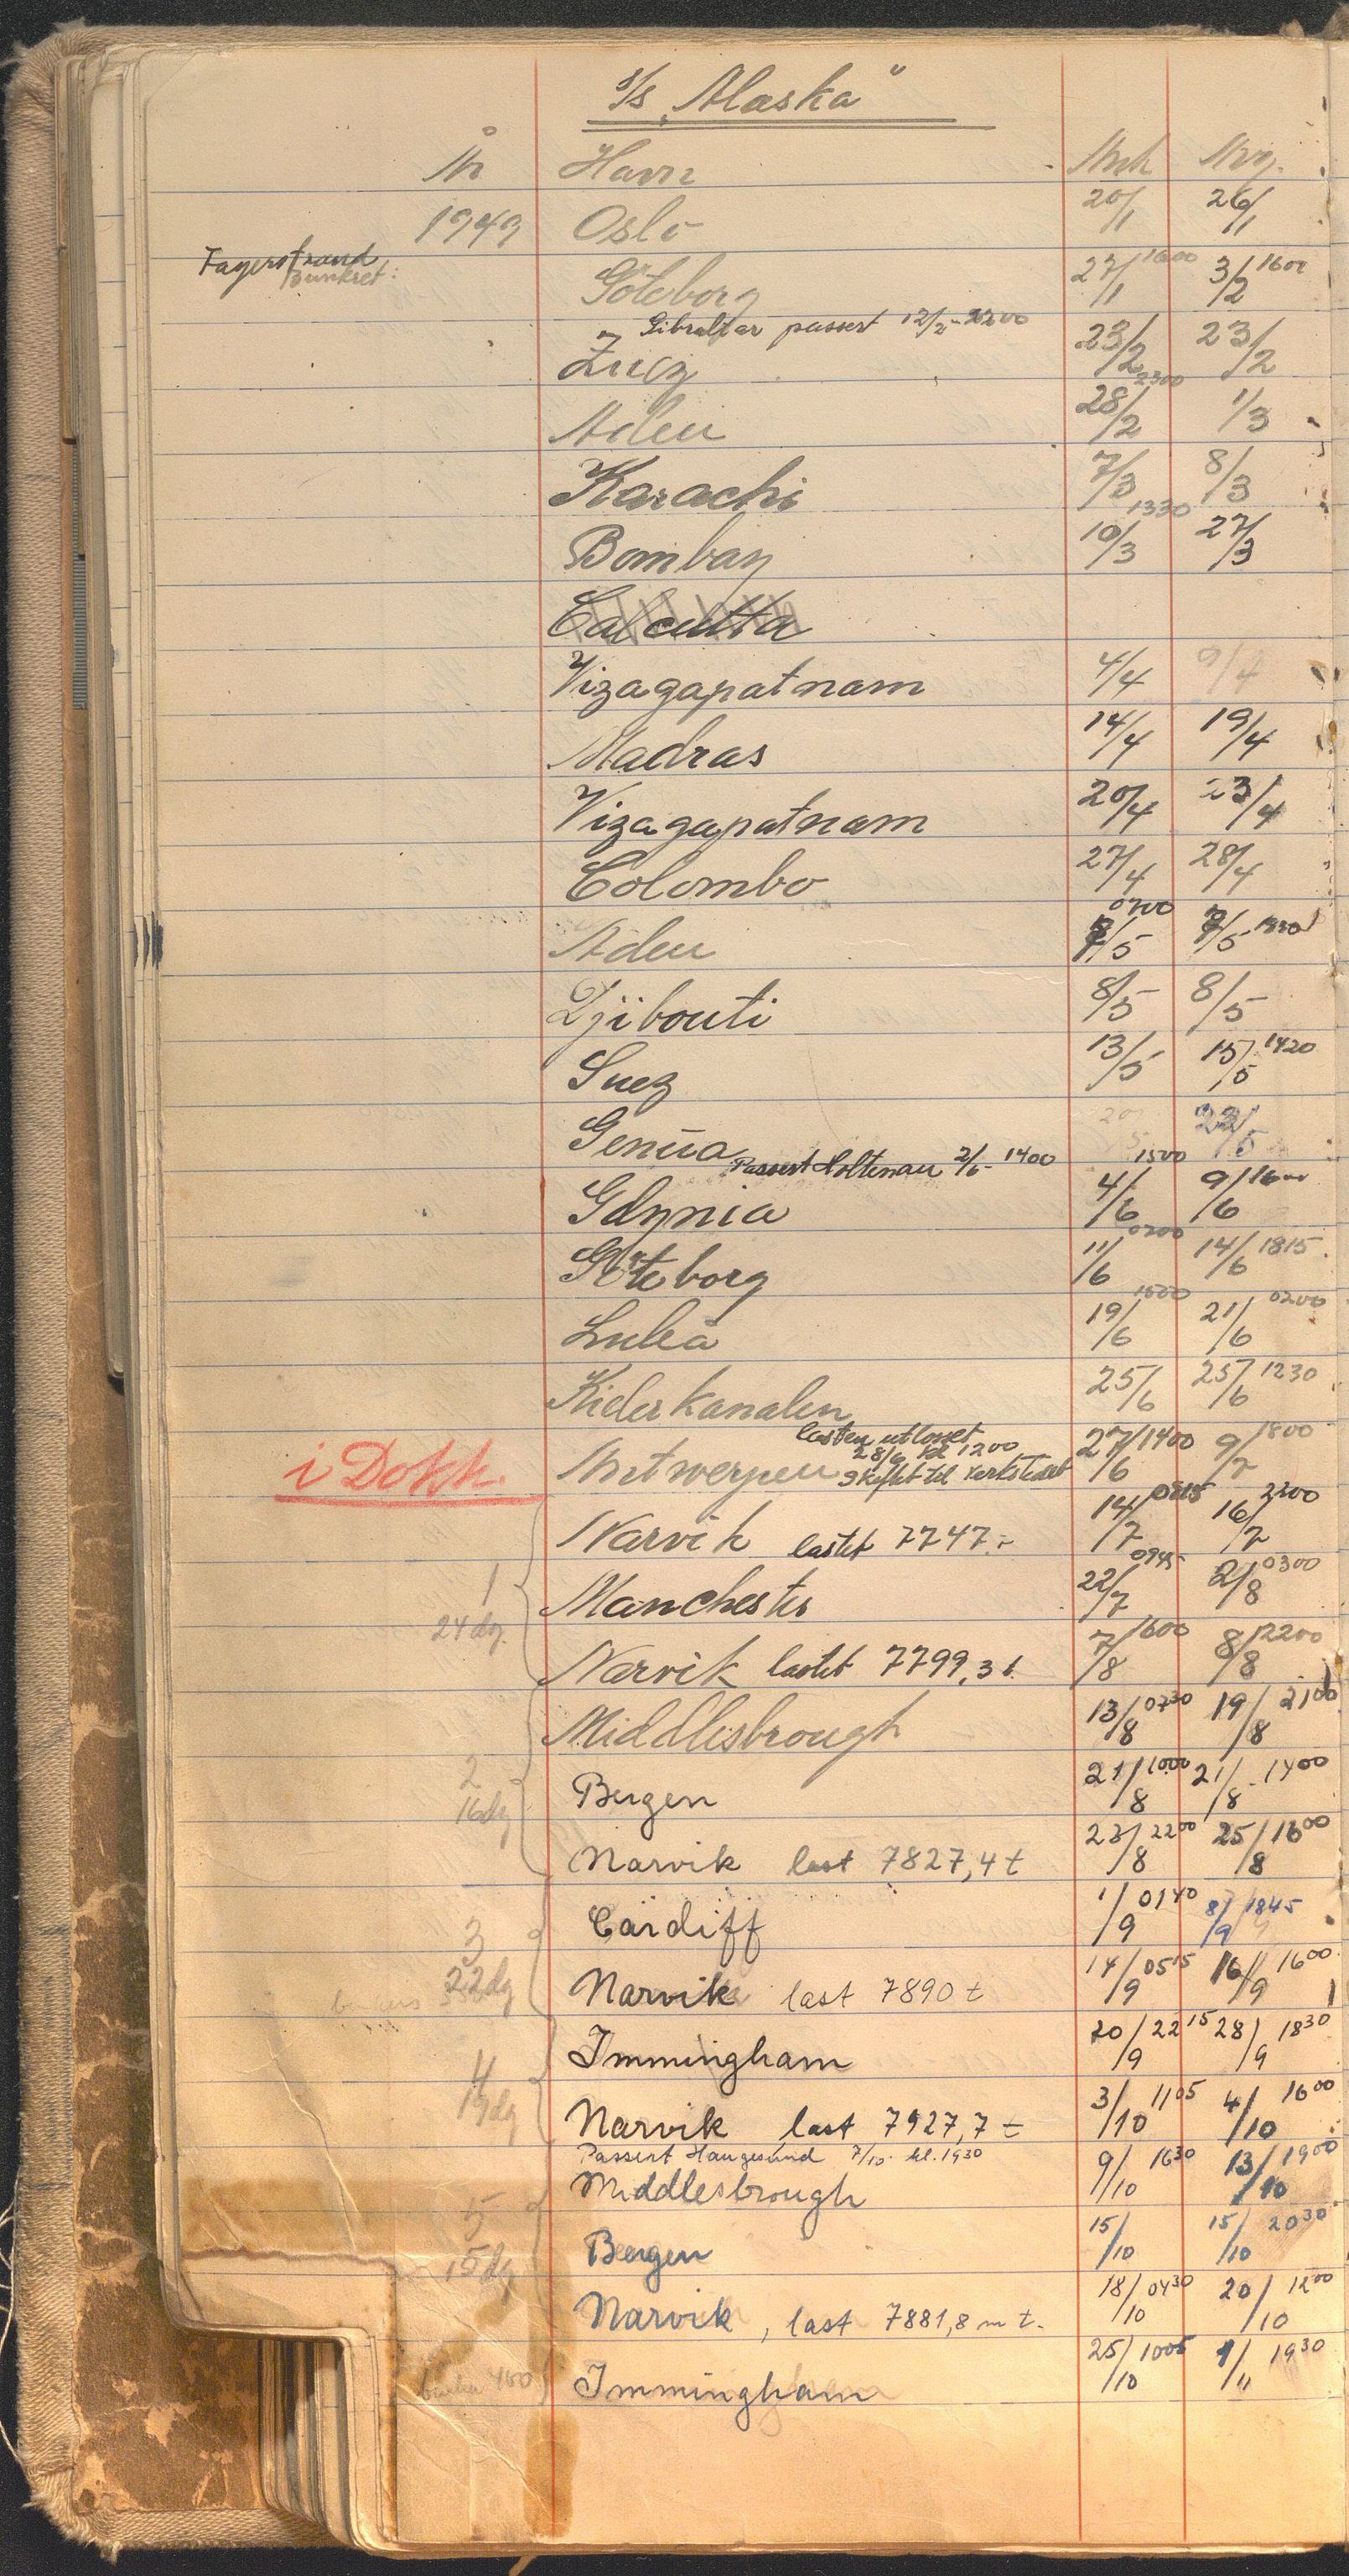 s/s „Alaska"
År Havn Ank Avg.
1949 Oslo 20/1 26/1
Fagerstrand
Bunkret:
Göteborg 27/1 1600 3/2 1600
Gibraltar passert 12/2 - 2200
Zuez 23/2 23/2
Aden 28/2 2300 1/3
Karachi 7/3 8/3
Bombay 10/3 1330 27/3
Calcutta
Vizagapatnam 4/4 9/4
Madras 14/4 19/4
Vizagapatnam 20/4 23/4
Colombo 27/4 28/4
Aden 7/5 0700 7/5 1330
Djibouti 8/5 8/5
Suez 13/5 15/5 1420
Genua 20/5 22/5
Passert Holtenau 2/6 - 1400
Gdynia 4/6 1500 9/6 1600
Göteborg 11/6 0200 14/6 1815
Luleå 19/6 1800 21/6 0200
Kielerkanalen 25/6 25/6 1230
lasten utlosset
28/6 kl 1200
i Dokk. Antwerpen skiftet til verkstedet 27/6 1400 9/7 1800
Narvik lastet 7747.- 14/7 0815 16/7 2200
1 Manchester 22/7 0945 2/8 0300
24 dg.
Narvik lastet 7799,3 t. 7/8 1600 8/8 2200
Middlesbrough 13/8 0730 19/8 2100
2 Bergen 21/8 1000 21/8 - 1400
16 dg
Narvik last 7827,4 t 23/8 2200 25/8 1600
Cardiff 1/9 0140 8/9 1845
3
22 dg Narvik last 7890 t 14/9 0515 16/9 1600
bunkers
Immingham 20/9 2215 28/9 1830
4
19 dg Narvik last 7927,7 t 3/10 1105 4/10 1600
Passert Haugesund 7/10 kl. 1930
Middlesbrough 9/10 1630 13/10 1900
5
15 dg Bergen 15/10 15/10 2030
Narvik, last 7881,8 m t. 18/10 0430 20/10 1200
Immingham 25/10 1005 1/11 1930